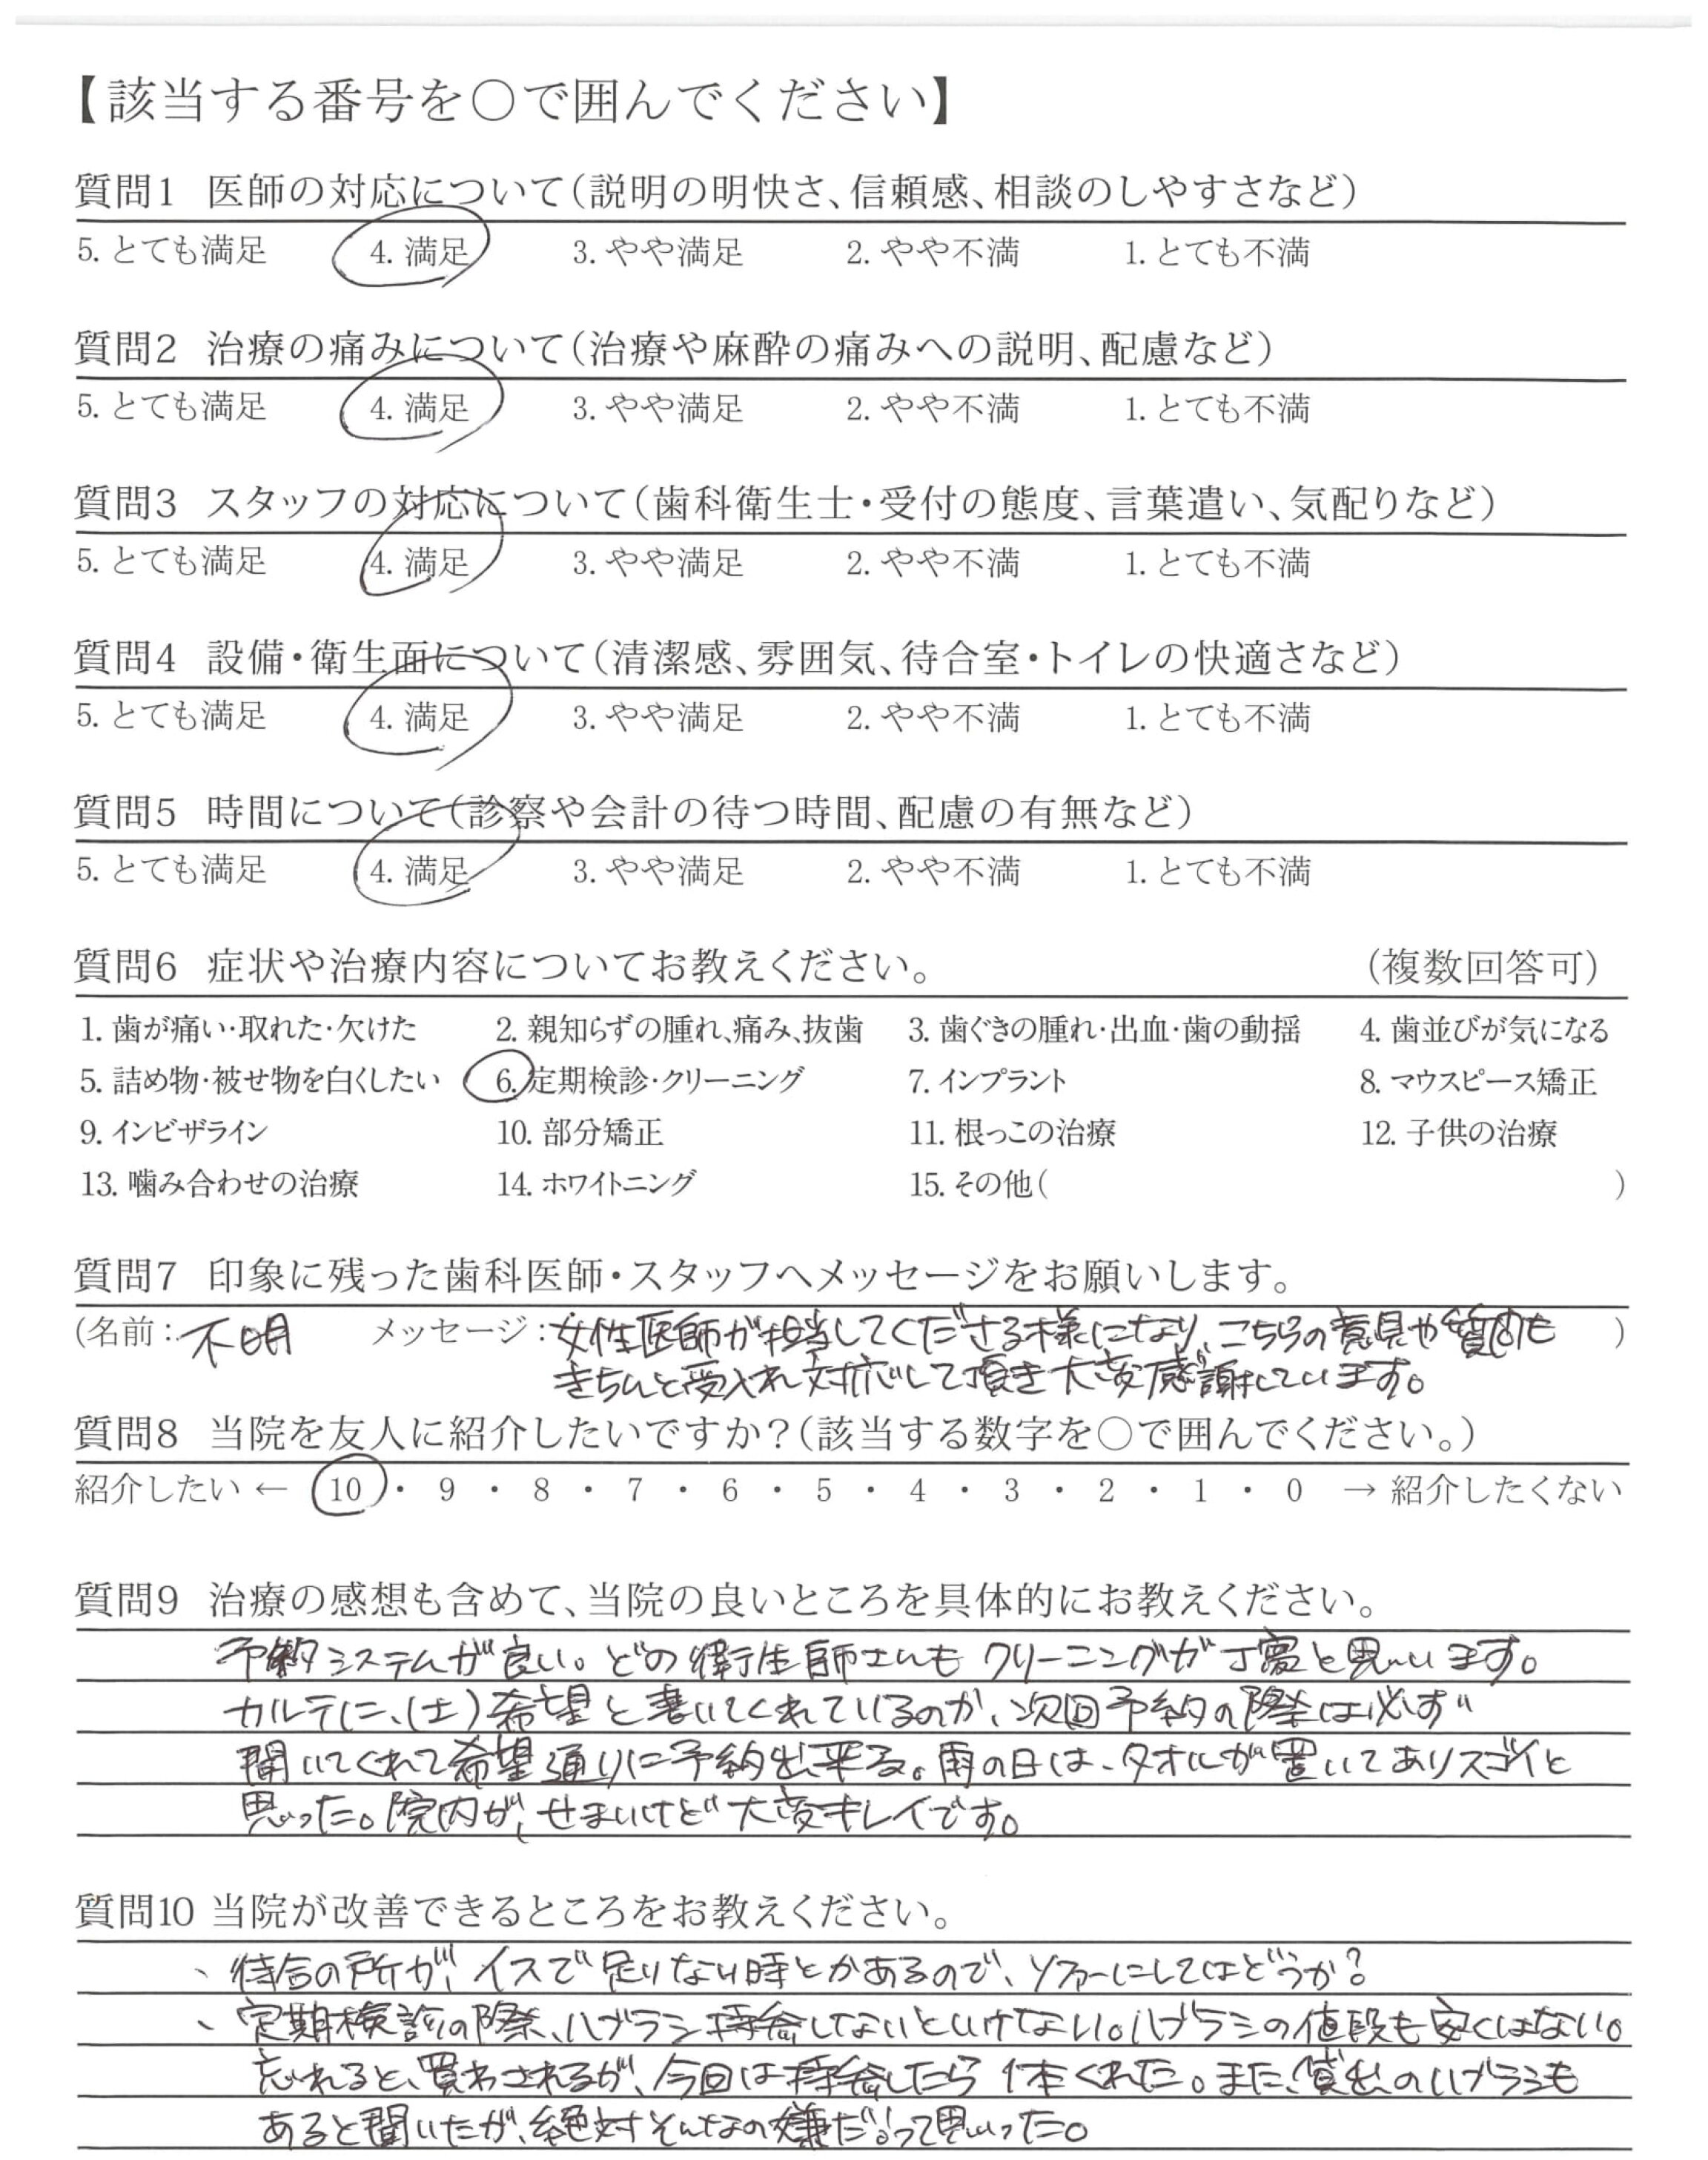 【該当する番号を○で囲んでください】
質問1 医師の対応について(説明の明快さ、信頼感、相談のしやすさなど)
5. とても満足 4. 満足 3. やや満足 2. やや不満 1. とても不満
質問2 治療の痛みについて(治療や麻酔の痛みへの説明、配慮など)
5. とても満足 4. 満足 3. やや満足 2. やや不満 1. とても不満
質問3 スタッフの対応について(歯科衛生士・受付の態度、言葉遣い、気配りなど)
5. とても満足 4. 満足 3. やや満足 2. やや不満 1. とても不満
質問4 設備・衛生面について(清潔感、雰囲気、待合室・トイレの快適さなど)
5. とても満足 4. 満足 3. やや満足 2. やや不満 1. とても不満
質問5 時間について(診察や会計の待つ時間、配慮の有無など)
5. とても満足 4. 満足 3. やや満足 2. やや不満 1. とても不満
質問6 症状や治療内容についてお教えください。 (複数回答可)
1. 歯が痛い・取れた・欠けた 2. 親知らずの腫れ、痛み、抜歯 3. 歯ぐきの腫れ・出血・歯の動揺 4. 歯並びが気になる
5. 詰め物・被せ物を白くしたい 6. 定期検診・クリーニング 7. インプラント 8. マウスピース矯正
9. インビザライン 10. 部分矯正 11. 根っこの治療 12. 子供の治療
13. 噛み合わせの治療 14. ホワイトニング 15. その他( )
質問7 印象に残った歯科医師・スタッフへメッセージをお願いします。
(名前:不明 メッセージ:女性医師が担当してくださる様になり、こちらの意見や質問も )
きちんと受入れ対応して頂き大変感謝しています。
質問8 当院を友人に紹介したいですか?(該当する数字を○で囲んでください。)
紹介したい ← 10 ・ 9 ・ 8 ・ 7 ・ 6 ・ 5 ・ 4 ・ 3 ・ 2 ・ 1 ・ 0 → 紹介したくない
質問9 治療の感想も含めて、当院の良いところを具体的にお教えください。
予約システムが良い。どの衛生師さんもクリーニングが丁寧と思います。
カルテに、(土)希望と書いてくれているのか、次回予約の際は必ず
聞いてくれて希望通りに予約出来る。雨の日は、タオルが置いてありスゴイと
思った。院内が、せまいけど大変キレイです。
質問10 当院が改善できるところをお教えください。
、待合の所が、イスで足りない時とかあるので、ソファーにしてはどうか?
、定期検診の際、ハブラシ持参しないといけない。ハブラシの値段も安くはない。
忘れると、買わされるが、今回は持参したら1本くれた。また、貸出のハブラシも
あると聞いたが、絶対そんなの嫌だ!って思った。